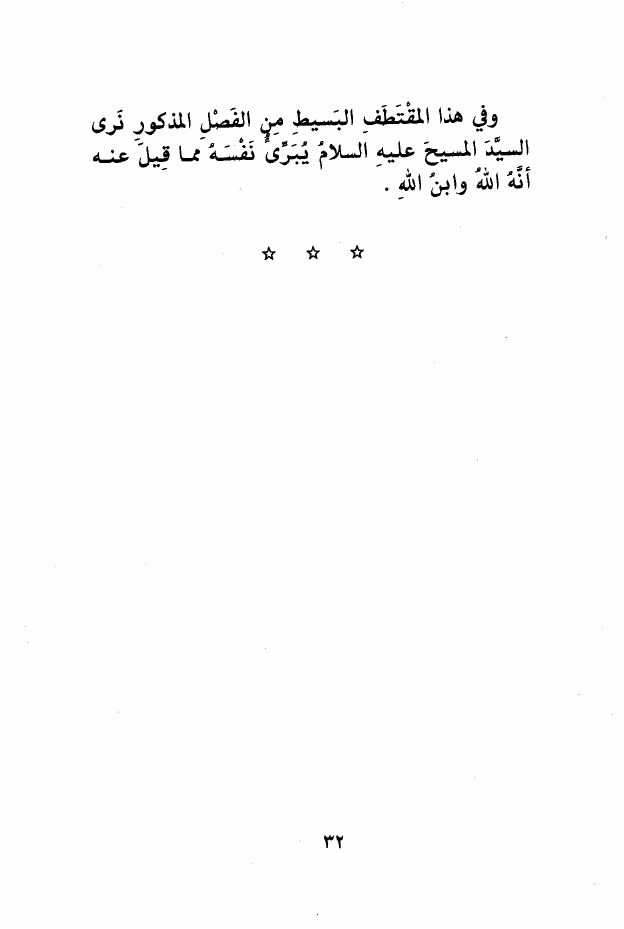 وفي هذا المقْتَطَفِ البَسيطِ مِنِ الفَصْلِ المذكورِ نَرى
السيَّدَ المسيحَ عليهِ السلامُ يُبَرِّىءُ نَفْسَهُ مما قِيلَ عنه
أنَّهُ اللهُ وابنُ اللهِ .
☆ ☆ ☆
٣٢